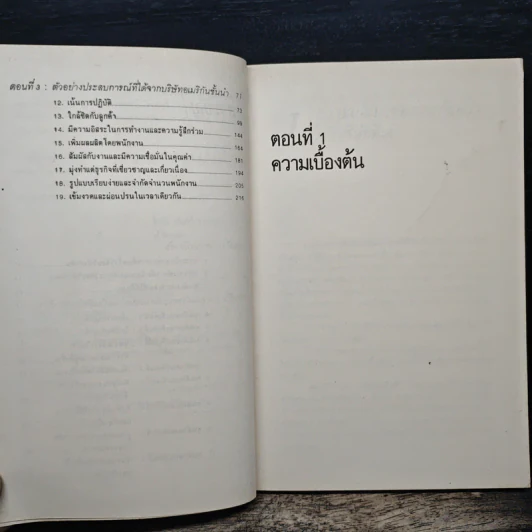 ตอนที่ 3 : ตัวอย่างประสบการณ์ที่ได้จากบริษัทอเมริกันชั้นนำ 71
12. เน้นการปฏิบัติ 73
13. ใกล้ชิดกับลูกค้า 98
14. มีความอิสระในการทำงานและความรู้สึกร่วม 144
15. เพิ่มผลผลิตโดยพนักงาน 164
16. สัมผัสกับงานและมีความเชื่อมั่นในคุณค่า 181
17. มุ่งทำแต่ธุรกิจที่เชี่ยวชาญและเกี่ยวเนื่อง 194
18. รูปแบบเรียบง่ายและจำกัดจำนวนพนักงาน 205
19. เข้มงวดและผ่อนปรนในเวลาเดียวกัน 216
ตอนที่ 1
ความเบื้องต้น